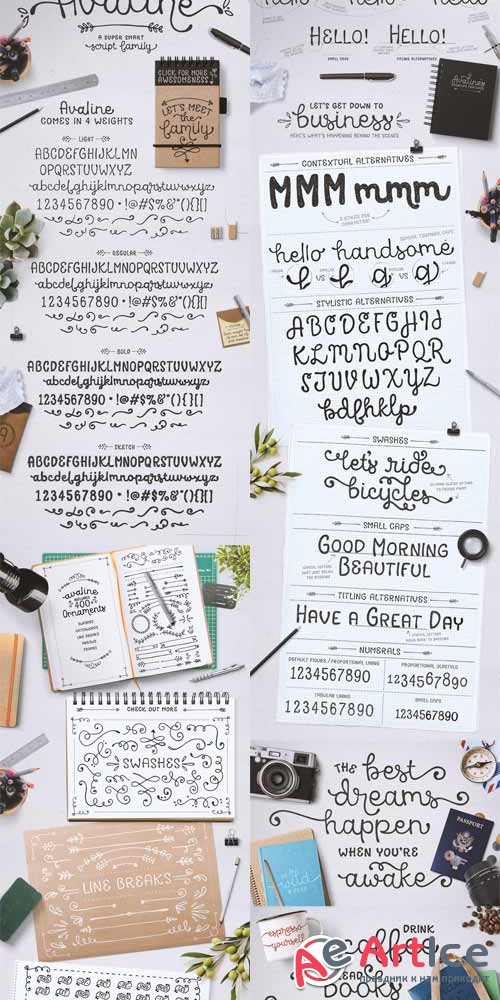 Avaline
A SUPER SMART
script family
CLICK FOR MORE
AWESOMENESS
LET'S MEET
the
family
Avaline
COMES IN 4 WEIGHTS
LIGHT
ABCDEFGHIJKLMN
OPQRSTUVWXYZ
abcdefghijklmnopqrstuvwxyz
1234567890 • !@#$%&*(){}[]
REGULAR
ABCDEFGHIJKLMNOPQRSTUVWXYZ
abcdefghijklmnopqrstuvwxyz
1234567890 • !@#$%&*(){}[]
BOLD
ABCDEFGHIJKLMNOPQRSTUVWXYZ
abcdefghijklmnopqrstuvwxyz
1234567890 • !@#$%&*(){}[]
SKETCH
ABCDEFGHIJKLMNOPQRSTUVWXYZ
abcdefghijklmnopqrstuvwxyz
1234567890 • !@#$%&*(){}[]
9
avaline
INCLUDES
400
Ornaments
SWASHES
CATCHWORDS
LINE BREAKS
FRAMES
CHECK OUT MORE
SWASHES
LINE BREAKS
HELLO! HELLO!
SMALL CAPS
TITLING ALTERNATIVES
LET'S GET DOWN TO
business
HERE'S WHAT'S HAPPENING BEHIND THE SCENES
Avaline's
CONTEXTUAL ALTERNATIVES
MMM mmm
3 STYLES PER
CHARACTER!
hello handsome
VERSUS
VS
VERSUS
STYLISTIC ALTERNATIVES
ABCDEFGHIJ
KLMNOPQR
STUVWXYZ
bdfhklp
SWASHES
let's ride
bicycles
SMALL CAPS
GOOD MORNING
BEAUTIFUL
TITLING ALTERNATIVES
HAVE A GREAT DAY
NUMERALS
DEFAULT FIGURES / PROPORTIONAL LINING
1234567890
PROPORTIONAL OLDSTYLE
1234567890
TABULAR LINING
1234567890
SMALL CAPS
1234567890
THE best
dreams
happen
WHEN YOU'RE
awake
PASSPORT
wild
espresso
yourself
DRINK
coffee
READ
BOOKS
Artice
праздник к нам приходит